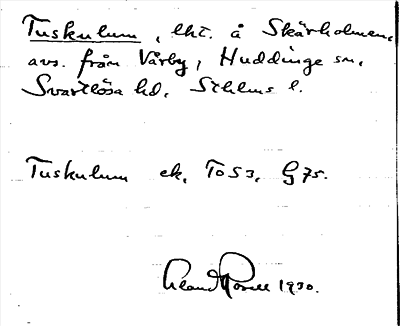 Tuskulum, lht. å Skärholmen,
avs. från Vårby, Huddinge sn,
Svartlösa hd. Sthlms l.
Tuskulum ek. To S3, G 75.
1930.